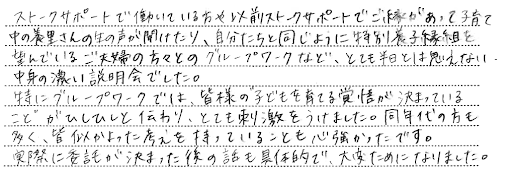 ストークサポートで働いている方や以前ストークサポートでご縁があって子育て
中の養里さんの生の声が聞けたり、自分たちと同じように特別養子縁組を
望んでいるご夫婦の方々とのグループワークなど、とても半日とは思えない
中身の濃い説明会でした。
特にグループワークでは、皆様の子どもを育てる覚悟が決まっている
ことがひしひしと伝わり、とても刺激をうけました。同年代の方も
多く、皆似かよった考えを持っていることも心強かったです。
実際に委託が決まった後の話も具体的で、大変ためになりました。